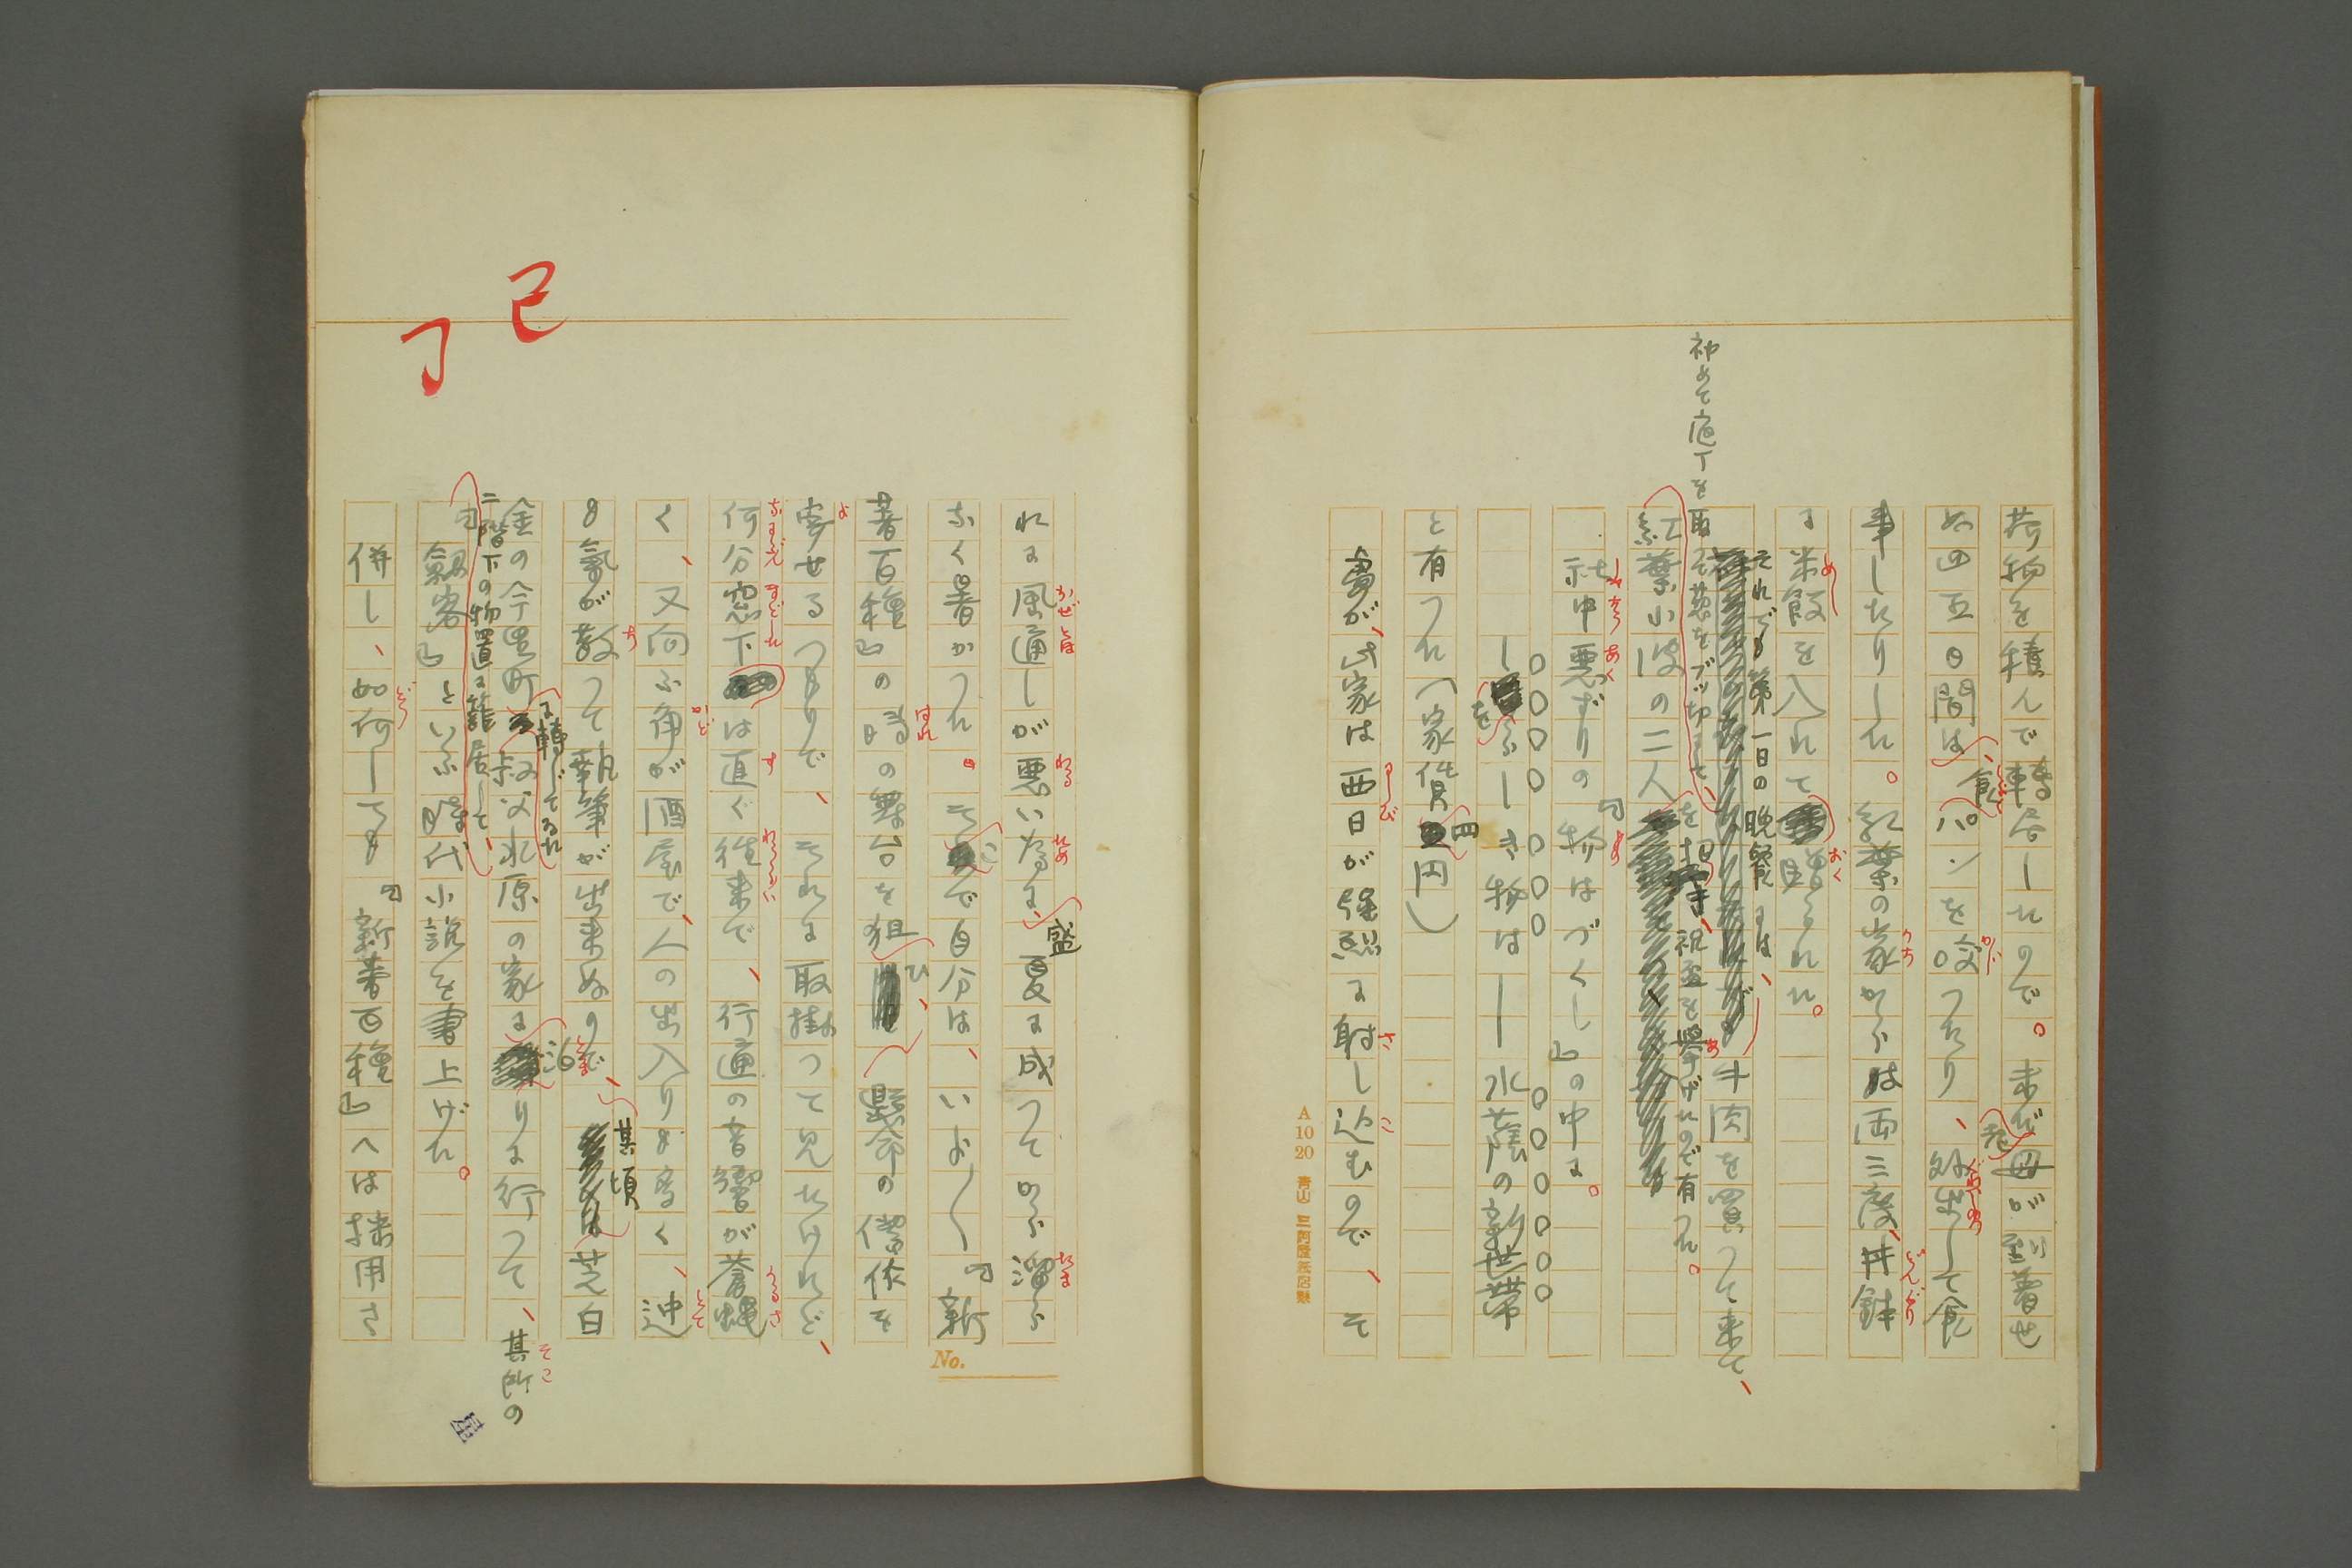 荷物を積んで轉居したので。未だ母が到着せ
ぬ四五日間は、パンを咬つたり、外出して食
食
事したりした。紅葉の家からは両三度、丼鉢
に米飯を入れて贈られた。
それでも第一日の晩餐には、牛肉を買つて来て、
初めて庖丁を取つて葱をブッ切にして、
紅葉小波の二人を招き、祝盃を擧げたので有つた。
社中悪ずりの『物はづくし』の中に。
をかしき物は——水蔭の新世帯
と有つた(家賃四円)
處が、此家は西日が強烈に射し込むので、そ
A 10 20
れに風通しが悪い為に、盛夏に成つてから溜ら
なく暑かつた。そこで自分は、いよ〱『新
著百種』の時の舞台を狙ひ、懸命の傑作を
寄せるつもりで、それに取掛つて見たけれど、
何分窓下は直ぐ往来で、行通の音響が蒼蠅
く、又向ふ角が酒屋で、人の出入りも多く、迚
も氣が散つて執筆が出来ぬので、其頃芝白
金の今里町に轉じてゐた叔父水原の家に泊りに行つて、其所の
二階下の物置に籠居して、
『剱客』といふ時代小説を書上げた。
併し、如何しても『新著百種』へは採用さ
No.